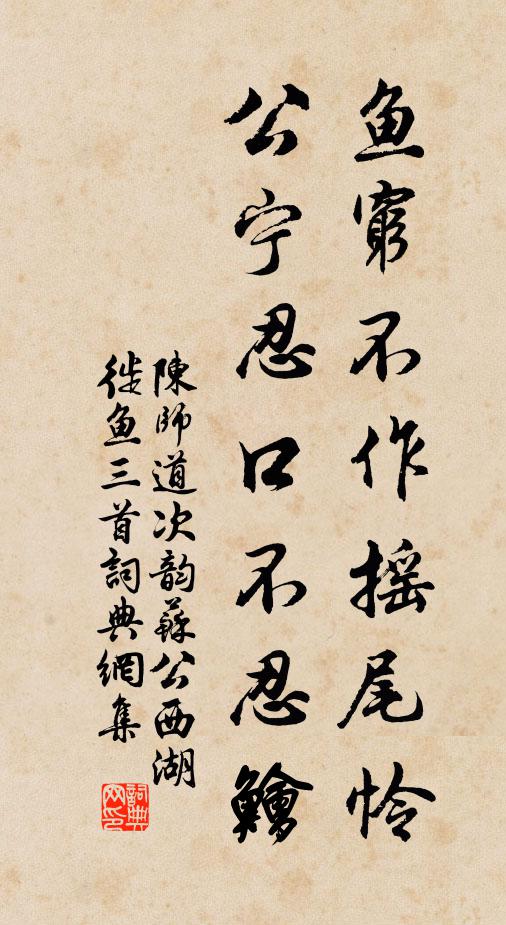 鱼窮不作摇尾怜
公宁忍口不忍鱠
陳師道次韵蘇公西湖
徙鱼三首詞典網集
詞典
网印